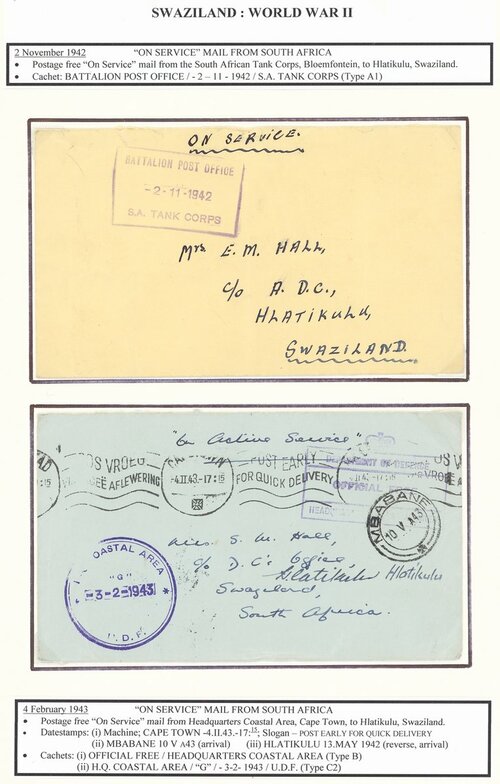 SWAZILAND : WORLD WAR II
2 November 1942 "ON SERVICE" MAIL FROM SOUTH AFRICA
• Postage free "On Service" mail from the South African Tank Corps, Bloemfontein, to Hlatikulu, Swaziland.
• Cachet: BATTALION POST OFFICE / - 2 – 11 - 1942 / S.A. TANK CORPS (Type A1)
ON SERVICE.
BATTALION POST OFFICE
-2-11-1942
S.A. TANK CORPS
Mrs E. M. HALL,
c/o A. D.C.,
HLATIKULU,
SWAZILAND.
"On Active Service"
OS VROEG
AFLEWERING
-4.II.43.-17:15
POST EARLY
FOR QUICK DELIVERY
DEPARTMENT OF DEFENCE
OFFICIAL
VROE
MBABANE
10 V A43
COASTAL AREA
"G"
-3-2-1943
U.D.F.
Hall,
c/o D.C's Office,
Hlatikulu Hlotikulu
Swaziland,
South Africa.
4 February 1943 "ON SERVICE" MAIL FROM SOUTH AFRICA
• Postage free "On Service" mail from Headquarters Coastal Area, Cape Town, to Hlatikulu, Swaziland.
• Datestamps: (i) Machine; CAPE TOWN -4.II.43.-17:15; Slogan – POST EARLY FOR QUICK DELIVERY
(ii) MBABANE 10 V A43 (arrival) (iii) HLATIKULU 13.MAY 1942 (reverse, arrival)
• Cachets: (i) OFFICIAL FREE / HEADQUARTERS COASTAL AREA (Type B)
(ii) H.Q. COASTAL AREA / "G" / - 3-2- 1943 / U.D.F. (Type C2)